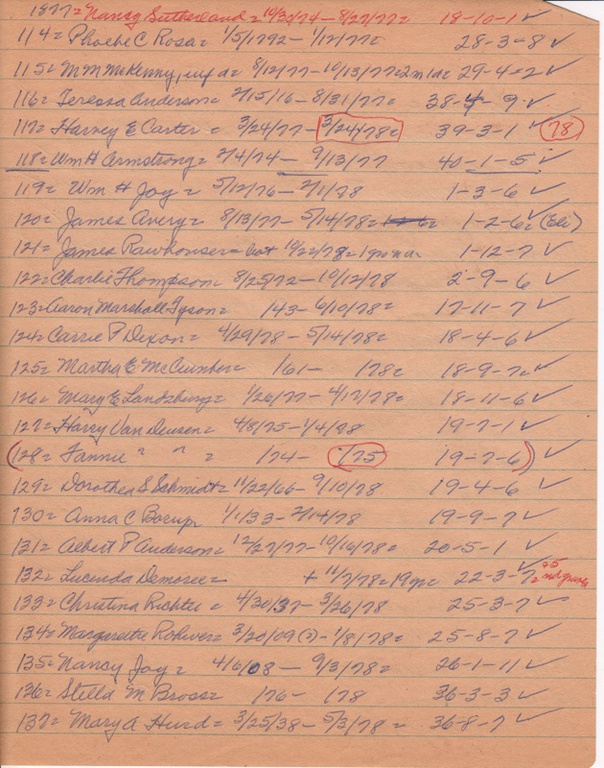 1877 = Nancy Sutherland = 10/30/74 - 8/27/77 = 18-10-1 ✓
114 = Phoebe C Rosa = 1/5/1792 - 1/12/77 = 28-3-8 ✓
115 = M M McKenny, inf d = 8/12/77 - 10/13/77 = 2m 1d = 29-4-2 ✓
116 = Teressa Anderson = 2/15/16 - 8/31/77 = 38-4-9 ✓
117 = Harvey E Carter = 3/24/77 - 3/24/78 = 39-3-1 ✓ 78
118 = Wm H Armstrong = 2/4/74 - 9/13/77 40-1-5 ✓
119 = Wm H Joy = 5/12/76 - 2/11/78 1-3-6 ✓
120 = James Avery = 8/13/77 - 5/14/78 = 1-2-6 = ✓ (Eli)
121 = James Rawhouser = 10/22/78 = 1-12-7 ✓
122 = Charlie Thompson = 8/25/72 - 10/12/78 2-9-6 ✓
123 = Aaron Marshall Tyson = 143 - 6/10/78 = 17-11-7 ✓
124 = Carrie P Dixon = 4/29/78 - 5/14/78 = 18-4-6 ✓
125 = Martha E McCumber = 161 - 178 = 18-9-7 = ✓
126 = Mary E Landsburg = 1/26/77 - 4/17/78 = 18-11-6 ✓
127 = Harry Van Deusen = 4/8/75 - 1/4/78 19-7-1 ✓
(128 = Fannie " " = 174 - 1/75 19-7-6) ✓
129 = Dorothea S Schmidt = 11/22/66 - 9/10/78 19-4-6 ✓
130 = Anna C Borup 1/1/33 - 2/14/78 19-9-7 ✓
131 = Albert P Anderson = 12/27/77 - 10/16/78 = 20-5-1 ✓
132 = Lucinda Demoree = + 11/7/78 = 19 22-3-7 = ✓
133 = Christina Richter = 4/30/37 - 3/26/78 25-3-7 ✓
134 = Margarettie Rohwer = 3/20/09 (?) - 1/8/78 = 25-8-7 ✓
135 = Nancy Joy = 4/6/08 - 9/3/78 = 26-1-11 ✓
136 = Stella M Bross = 176 - 178 36-3-3 ✓
137 = Mary A Hurd = 3/25/38 - 5/3/78 = 36-8-7 ✓